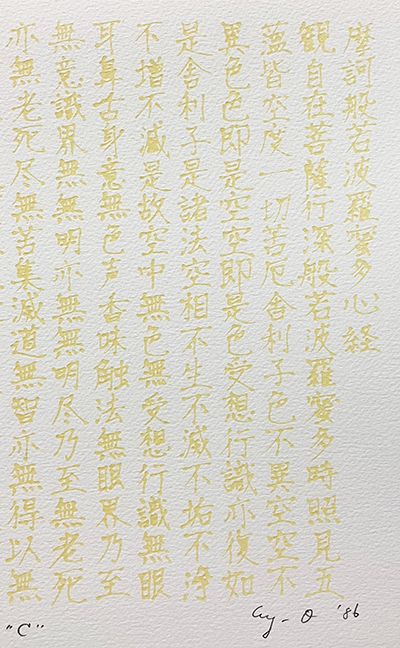 摩訶般若波羅蜜多心経
観自在菩薩行深般若波羅蜜多時照見五
蘊皆空度一切苦厄舎利子色不異空空不
異色色即是空空即是色受想行識亦復如
是舎利子是諸法空相不生不滅不垢不浄
不増不減是故空中無色無受想行識無眼
耳鼻舌身意無色声香味触法無眼界乃至
無意識界無無明亦無無明尽乃至無老死
亦無老死尽無苦集滅道無智亦無得以無
"C"
Ay-O '86